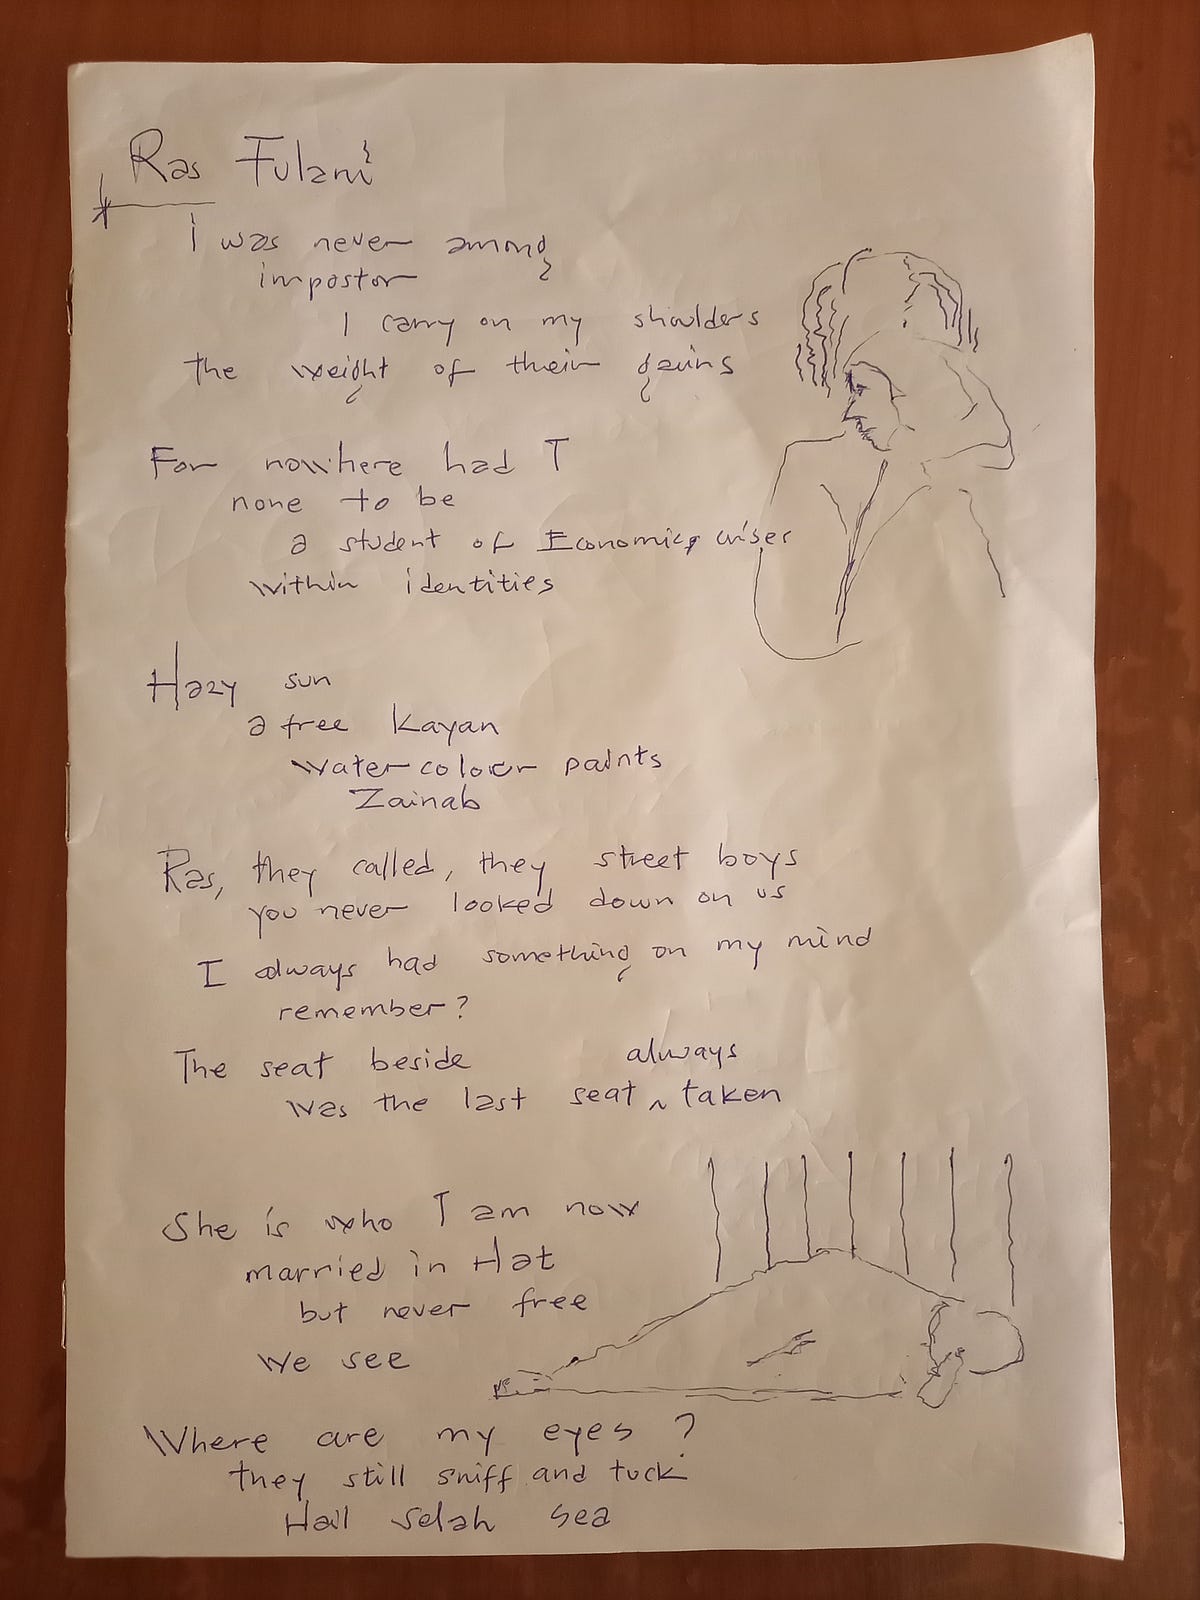 Ras Fulani
I was never among
impostor
I carry on my shoulders
the weight of their gains
For nowhere had I
none to be
a student of Economics wiser
within identities
Hazy sun
a free Kayan
Water colour paints
Zainab
Ras, they called, they street boys
you never looked down on us
I always had something on my mind
remember?
The seat beside
was the last seat always taken
She is who I am now
married in Hat
but never free
We see
Where are my eyes?
they still sniff and tuck
Hail Selah Sea